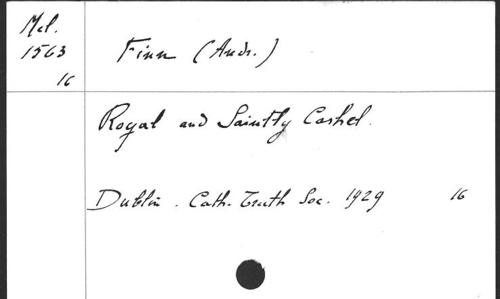 Mel.
1563 Finn (Andr.)
16
Royal and Saintly Cashel.
Dublin. Cath. Truth Soc. 1929 16